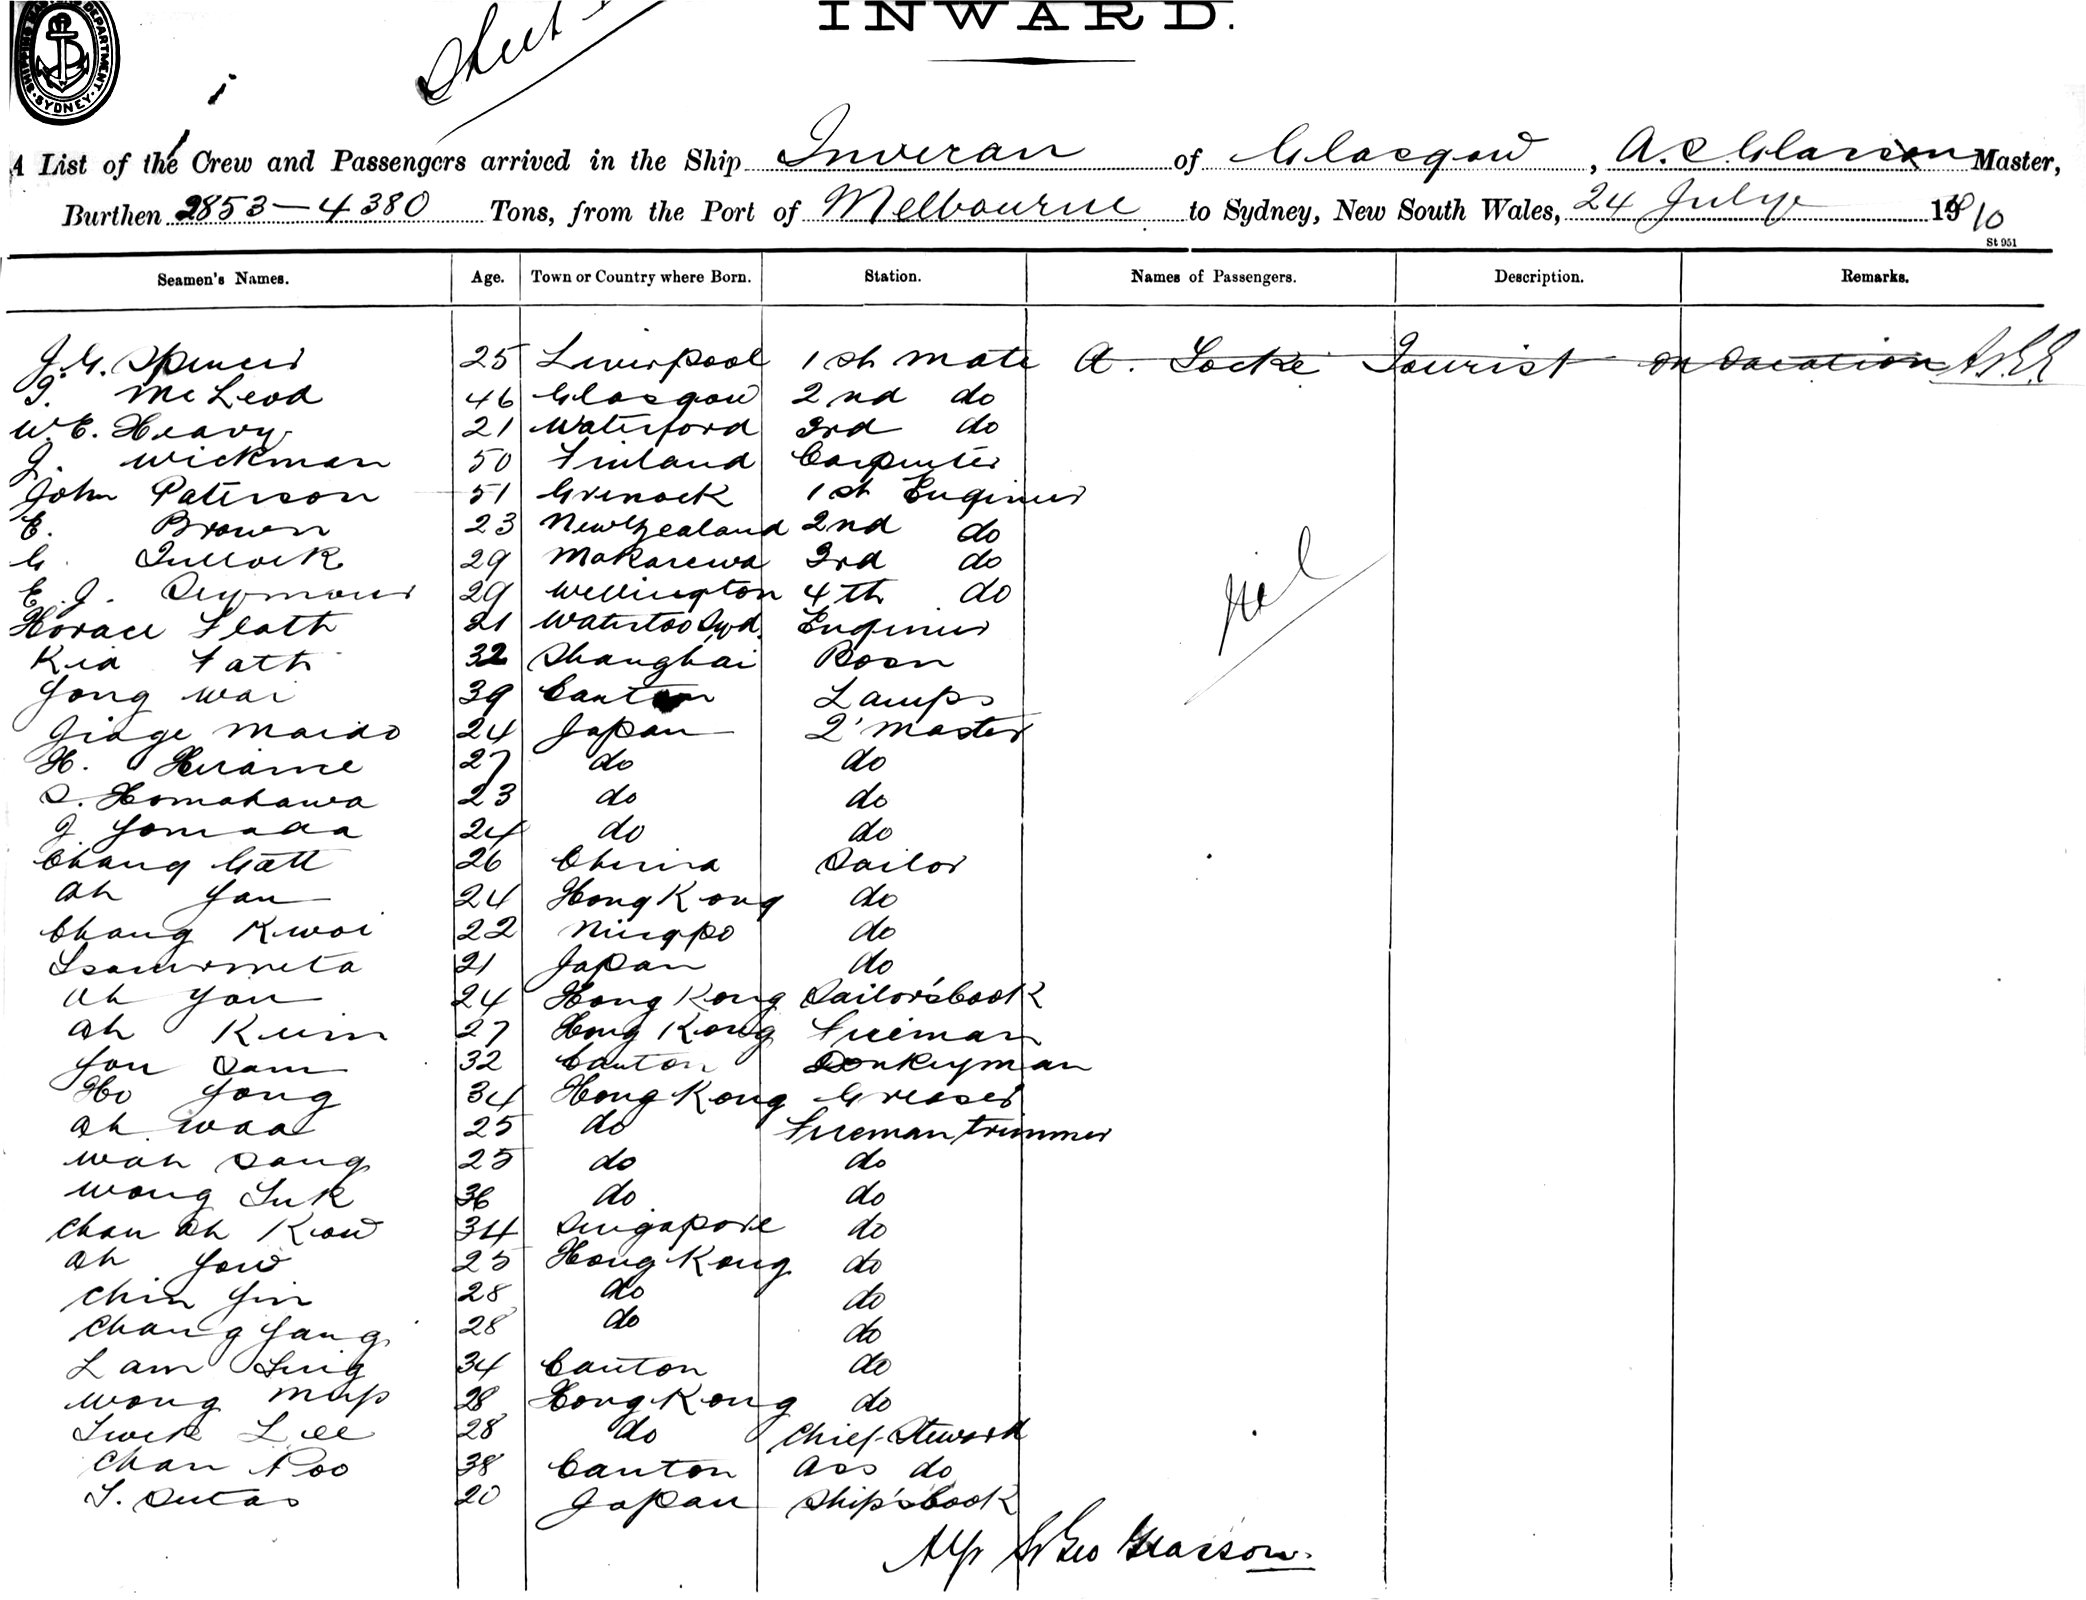 INWARD.
SYDNEY
Sheet
A List of the Crew and Passengers arrived in the Ship Inveran of Glasgow, A. S. Glasson Master,
Burthen 2853 — 4380 Tons, from the Port of Melbourne to Sydney, New South Wales, 24 July 1910
St 951
Seamen's Names. Age. Town or Country where Born. Station. Names of Passengers. Description. Remarks.
J. G. Spencer 25 Liverpool 1st mate A. Locke Tourist on vacation
McLeod 46 Glasgow 2nd do
W. E. Heavy 21 Waterford 3rd do
J. Wickman 50 Finland Carpenter
John Paterson 51 Grenock 1st Engineer
E. Brown 23 New Zealand 2nd do
G. Tullock 29 Makarewa 3rd do
E. J. Seymour 29 Wellington 4th do
Nil
Horace Flath 21 Waterloo Syd. Engineer
Kia Fatt 32 Shanghai Bosn
Yong Wai 39 Canton Lamps
Jiage Maido 24 Japan Q' Master
H. Hirame 27 do do
S. Homahawa 23 do do
J Yomada 24 do do
Chang Gatt 26 China Sailor
Ah Yan 24 Hong Kong do
Chang Kwoi 22 Ningpo do
21 Japan do
Ah You 24 Hong Kong Sailor's Cook
Ah Kum 27 Hong Kong Fireman
You Sam 32 Canton Donkeyman
Ho Yong 34 Hong Kong Greaser
Ah Waa 25 do Fireman trimmer
Wah Sang 25 do do
Wong Luk 36 do do
Chan Ah Kow 34 Singapore do
Ah Yow 25 Hong Kong do
Chin Yin 28 do do
Chang Yang 28 do do
Lam Sing 34 Canton do
Wong Mup 28 Hong Kong do
Lee 28 do Chief Steward
Chan Foo 38 Canton Ass do
S. Sutas 20 Japan Ship's Cook
Geo Glasson.